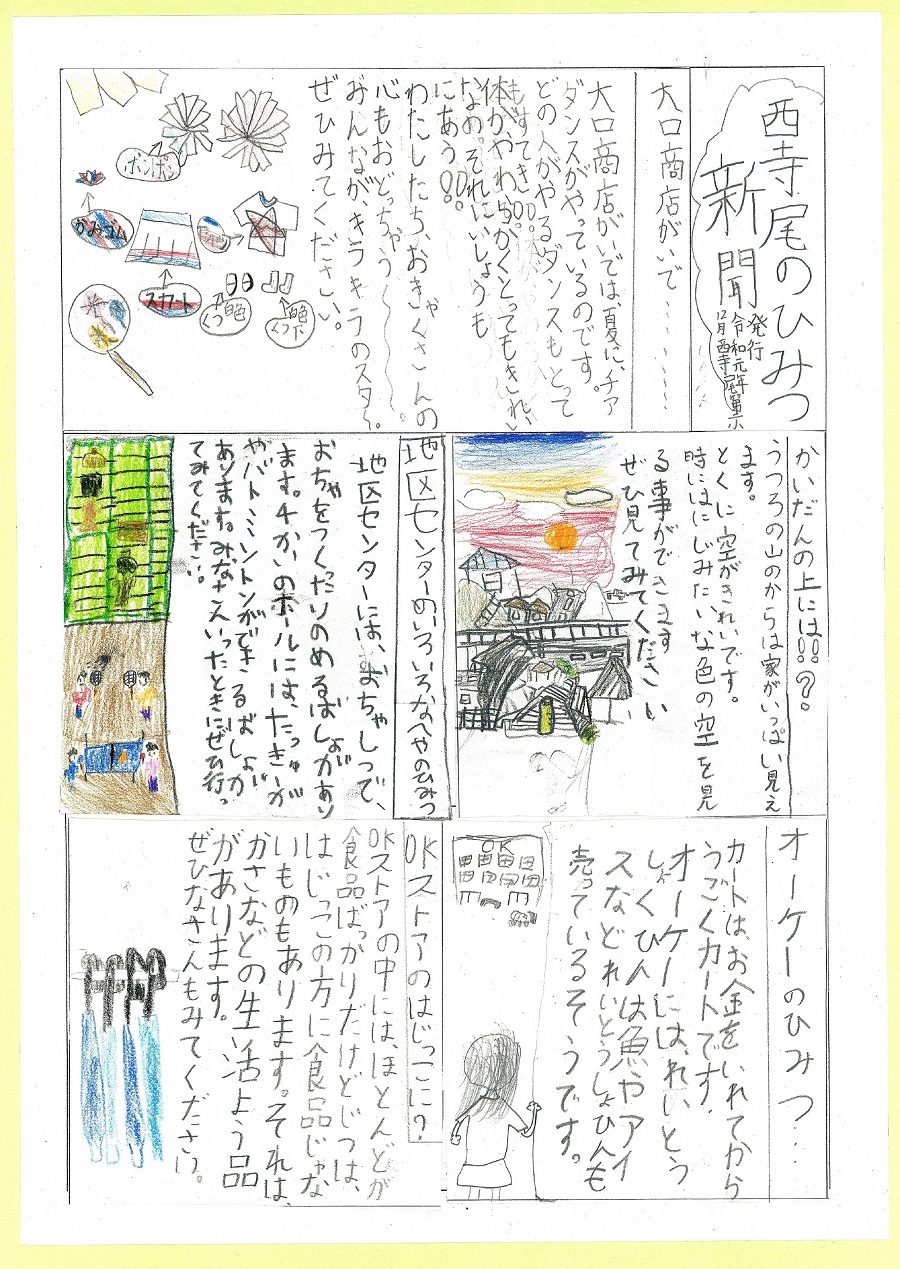 西寺尾のひみつ
新聞
発行
令和元年
12月西寺尾第二小
大口商店がいで……
大口商店がいでは、夏に、チア
ダンスがやっているのです。
どの人がやるダンスもとって
もすてき!!
体がやわらかくとってもきれい
なの。それにいしょうも
にあう!!
わたしたち、おきゃくさんの
心もおどっちゃう〜〜。
みんなが、キラキラのスター。
ぜひみてください。
ポンポン
かみゴム
スカート
白色
くつ
くつ下
かいだんの上には!!?
うつろの山のからは家がいっぱい見え
ます。
とくに空がきれいです。
時にはにじみたいな色の空を見
る事ができます
ぜひ見てみてください
地区センターのいろいろなへやのひみつ
地区センターには、おちゃしつで、
おちゃをつくったりのめるばしょがあり
ます。チかいのホールには、たっきゅうが
やバトミントンができるばしょが
あります。みなさんいったときにぜひ行っ
てみてください。
オーケーのひみつ…
カートは、お金をいれてから
うごくカートです。
オーケーには、れいとう
しょくひんは魚やアイ
スなどれいとうしょひんも
売っているそうです。
OK
OKストアのはじっこに?
OKストアの中には、ほとんどが
食品ばっかりだけどじつは、
はじっこの方に食品じゃな
いものもあります。それは、
かさなどの生活よう品
があります。
ぜひなさんもみてください。